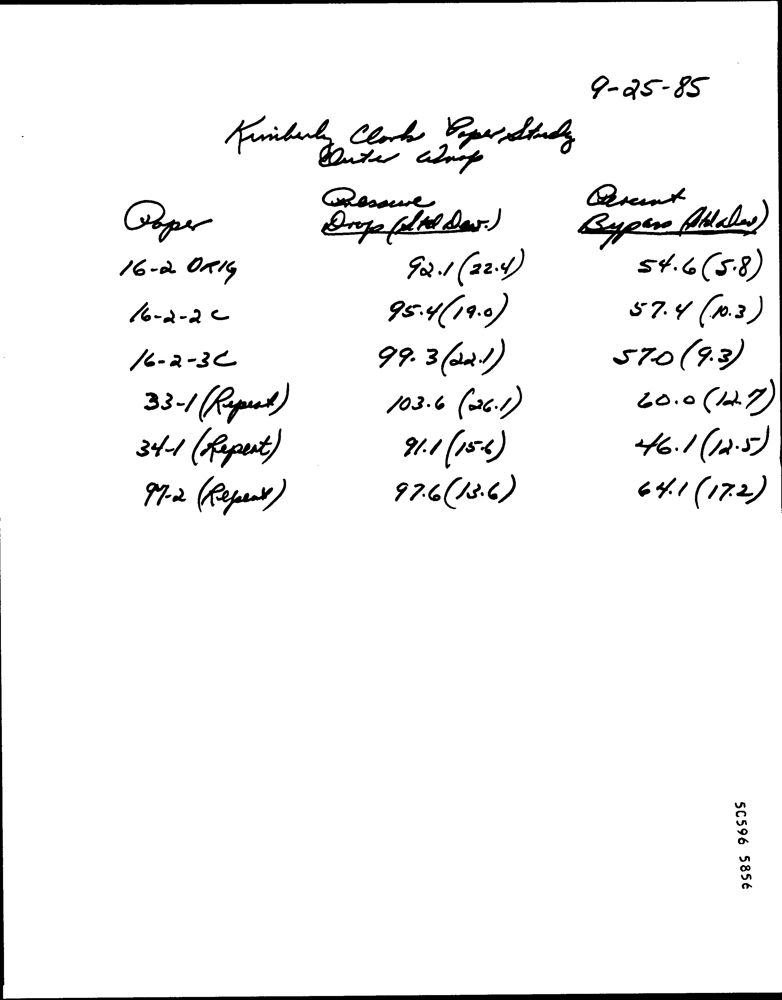 9-25-85
Kimberly Clark Paper Study
Outer Wrap
Paper Pressure Drop (Std Dev.) Percent Bypass (Std Dev)
16-2 ORIG 92.1 (22.4) 54.6 (5.8)
16-2-2C 95.4 (19.0) 57.4 (10.3)
16-2-3C 99.3 (22.1) 57.0 (9.3)
33-1 (Repeat) 103.6 (26.1) 60.0 (12.7)
34-1 (Repeat) 91.1 (15.6) 46.1 (12.5)
97-2 (Repeat) 97.6 (13.6) 64.1 (17.2)
50596 5856